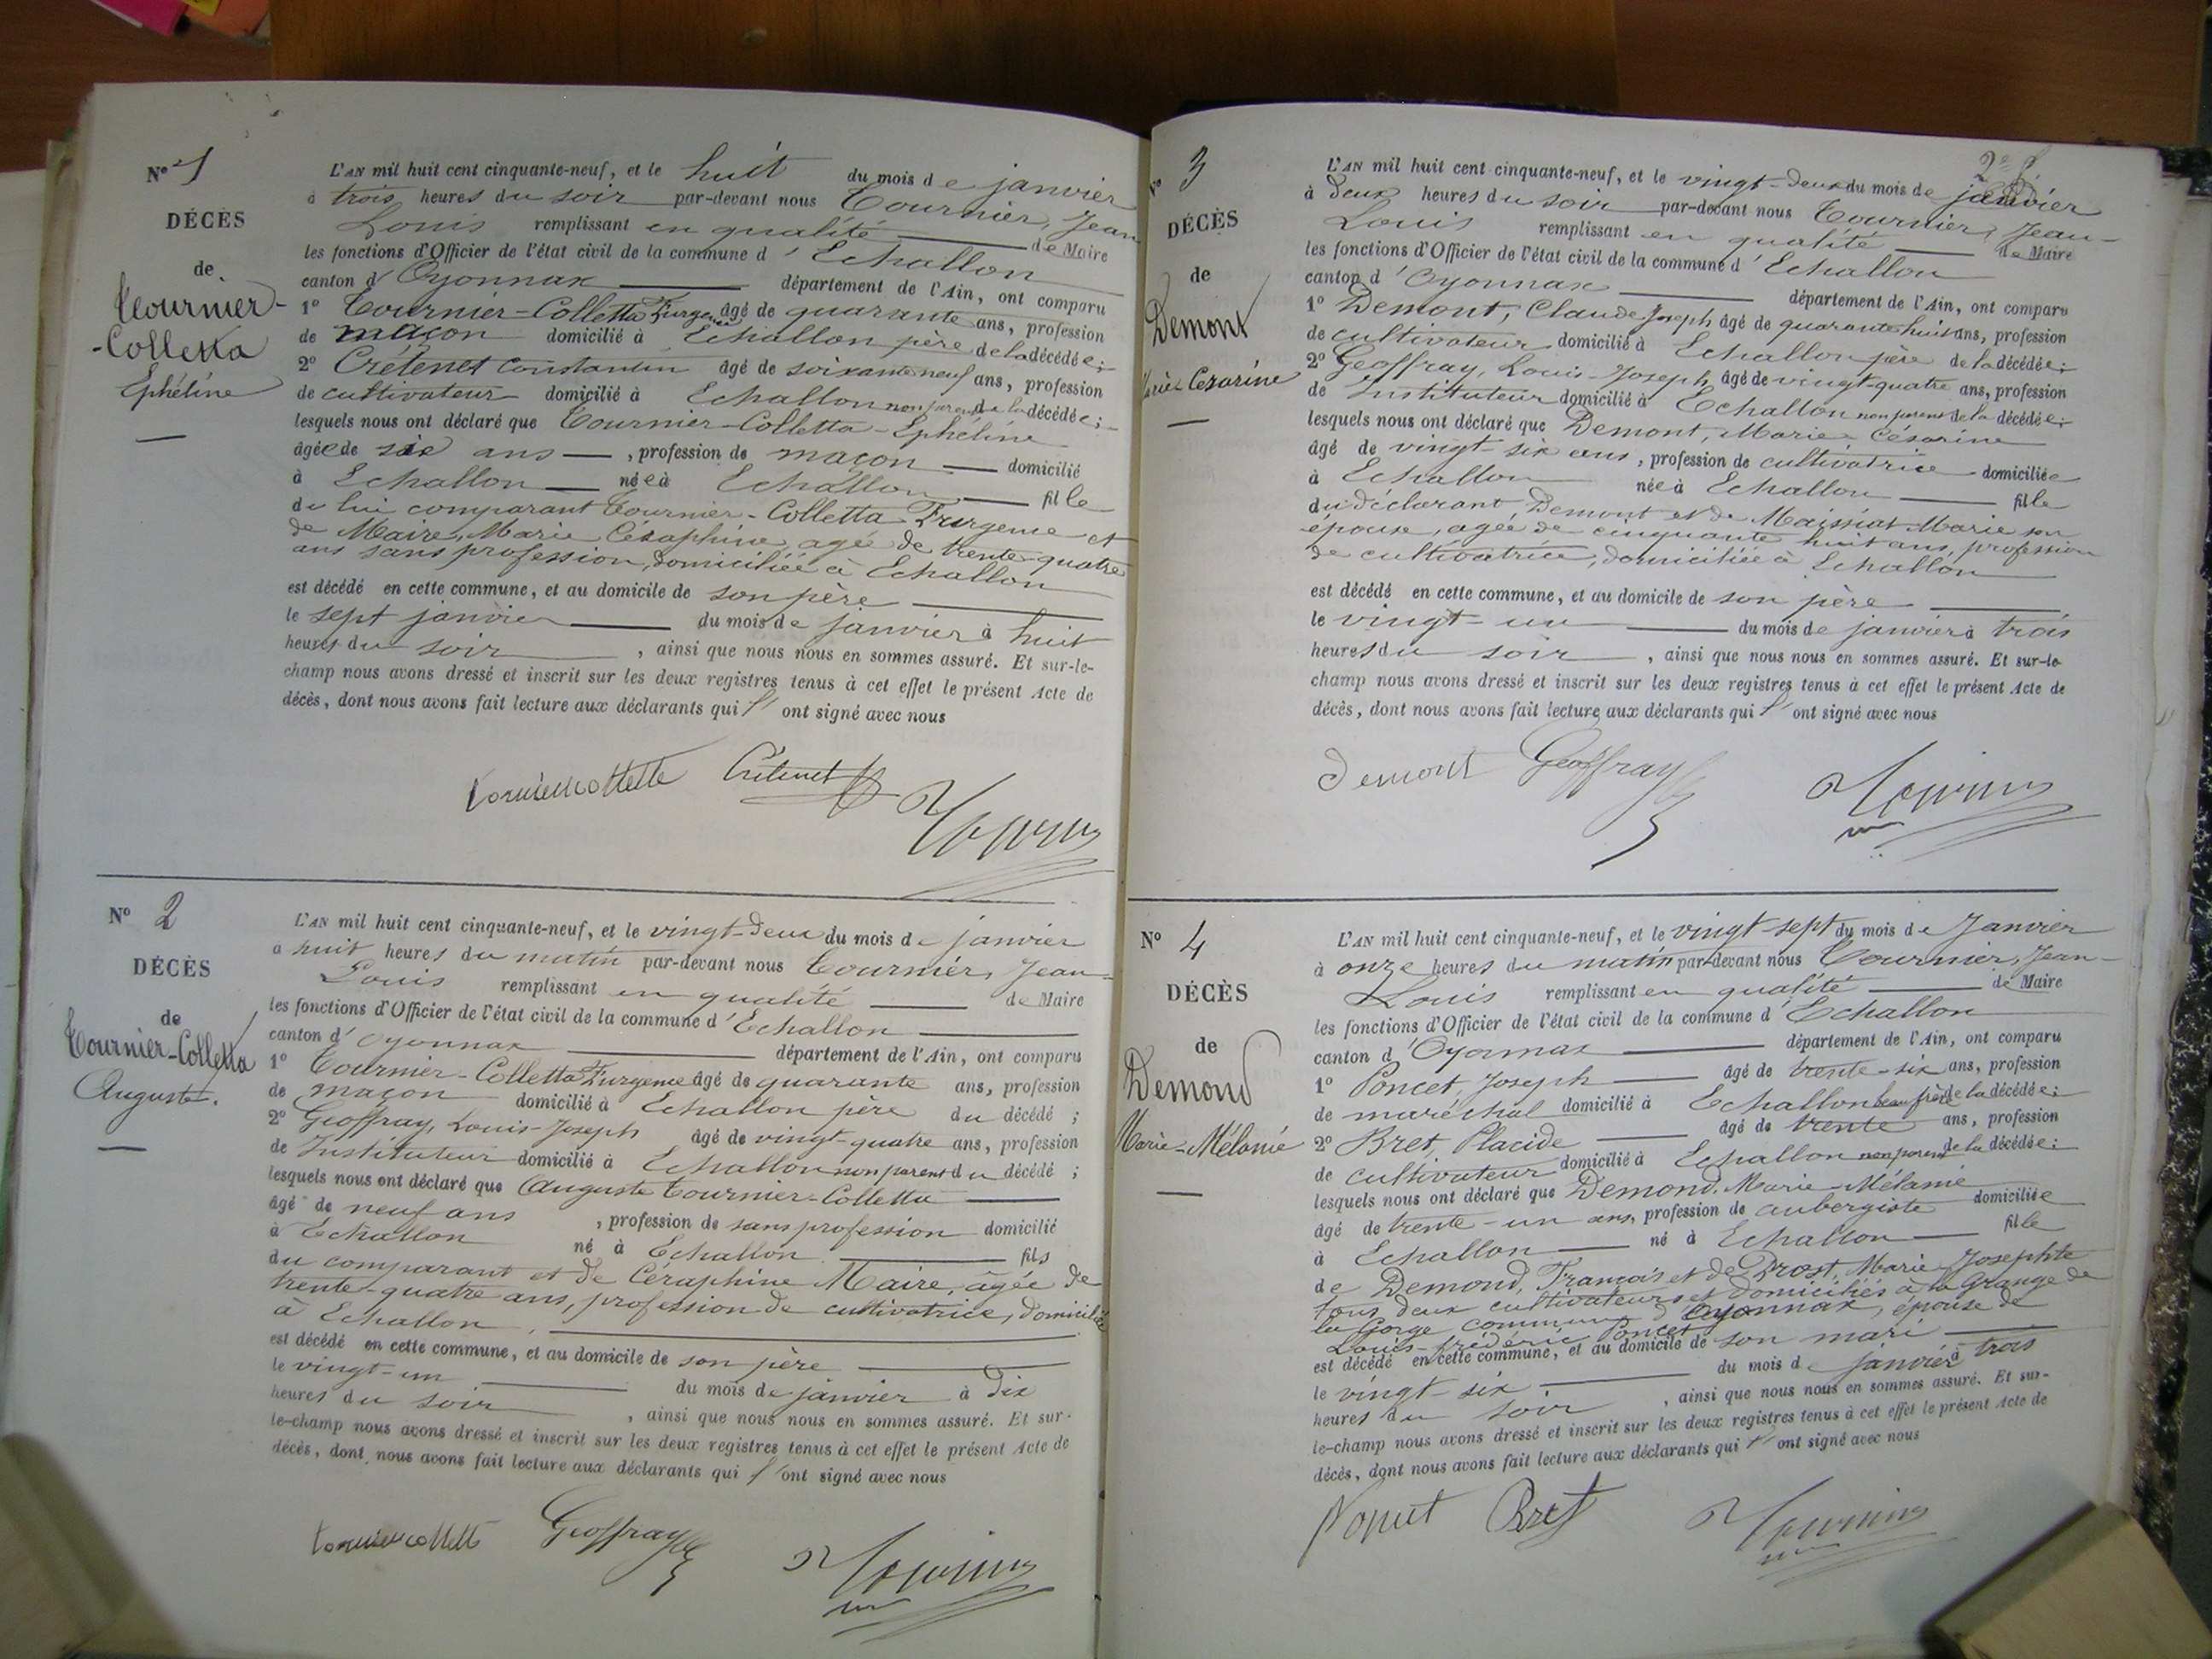 N° 1
DÉCÈS
de
Tournier-
-Colletta
Ephéline
L'AN mil huit cent cinquante-neuf, et le huit du mois de janvier
à trois heures du soir par-devant nous Tournier, Jean
Louis remplissant en qualité de Maire
les fonctions d'Officier de l'état civil de la commune d'Echallon
canton d'Oyonnax département de l'Ain, ont comparu
1° Tournier-Colletta Furgence âgé de quarante ans, profession
de maçon domicilié à Echallon père de la décédée;
2° Crétenet Constantin âgé de soixante neuf ans, profession
de cultivateur domicilié à Echallon non parent de la décédée;
lesquels nous ont déclaré que Tournier-Colletta-Ephéline
âgée de six ans, profession de maçon domicilié
à Echallon née à Echallon fille
de lui comparant Tournier-Colletta Frurgence et
de Maire, Marie Céraphine agé de trente-quatre
ans sans profession, domiciliée à Echallon
est décédé en cette commune, et au domicile de son père
le sept janvier du mois de janvier à huit
heures du soir, ainsi que nous nous en sommes assuré. Et sur-le-
champ nous avons dressé et inscrit sur les deux registres tenus à cet effet le présent Acte de
décès, dont nous avons fait lecture aux déclarants qui l' ont signé avec nous
Crétenet
N° 2
DÉCÈS
de
Tournier-Colletta
Auguste.
L'AN mil huit cent cinquante-neuf, et le vingt-deux du mois de janvier
à huit heures du matin par-devant nous Tournier, Jean-
Louis remplissant en qualité de Maire
les fonctions d'Officier de l'état civil de la commune d'Echallon
canton d'Oyonnax département de l'Ain, ont comparu
1° Tournier-Colletta Furgence âgé de quarante ans, profession
de maçon domicilié à Echallon père du décédé;
2° Geoffray, Louis-Joseph âgé de vingt-quatre ans, profession
de Instituteur domicilié à Echallon non parent du décédé;
lesquels nous ont déclaré que Auguste Tournier-Colletta
âgé de neuf ans, profession de sans profession domicilié
à Echallon né à Echallon fils
du comparant et de Céraphine Maire, âgée de
trente-quatre ans, profession de cultivatrice, domiciliée
à Echallon.
est décédé en cette commune, et au domicile de son père
le vingt-un du mois de janvier à dix
heures du soir, ainsi que nous nous en sommes assuré. Et sur-
le-champ nous avons dressé et inscrit sur les deux registres tenus à cet effet le présent Acte de
décès, dont nous avons fait lecture aux déclarants qui l'ont signé avec nous
Geoffray
N° 3
DÉCÈS
de
Demont
Marie Cezarine
L'AN mil huit cent cinquante-neuf, et le vingt-deux du mois de janvier
à deux heures du soir par-devant nous Tournier, Jean-
Louis remplissant en qualité de Maire
les fonctions d'Officier de l'état civil de la commune d'Echallon
canton d'Oyonnax département de l'Ain, ont comparu
1° Demont, Claude Joseph âgé de quarante huit ans, profession
de cultivateur domicilié à Echallon père de la décédée;
2° Geoffray, Louis-Joseph âgé de vingt-quatre ans, profession
de Instituteur domicilié à Echallon non parent de la décédée;
lesquels nous ont déclaré que Demont, Marie-Césarine
âgé de vingt-six ans, profession de cultivatrice domiciliée
à Echallon née à Echallon fille
du déclarant, Demont et de Maissiat Marie son
épouse, agée de cinquante huit ans, profession
de cultivatrice, domiciliée à Echallon
est décédé en cette commune, et au domicile de son père
le vingt-un du mois de janvier à trois
heures du soir, ainsi que nous nous en sommes assuré. Et sur-le-
champ nous avons dressé et inscrit sur les deux registres tenus à cet effet le présent Acte de
décès, dont nous avons fait lecture aux déclarants qui l'ont signé avec nous
Demont Geoffray
N° 4
DÉCÈS
de
Demond
Marie-Mélanie
L'AN mil huit cent cinquante-neuf, et le vingt sept du mois de Janvier
à onze heures du matin par-devant nous Tournier, Jean-
Louis remplissant en qualité de Maire
les fonctions d'Officier de l'état civil de la commune d'Echallon
canton d'Oyonnax département de l'Ain, ont comparu
1° Poncet, Joseph âgé de trente-six ans, profession
de maréchal domicilié à Echallon beau frère de la décédée;
2° Bret, Placide âgé de trente ans, profession
de cultivateur domicilié à Echallon non parent de la décédée;
lesquels nous ont déclaré que Demond, Marie-Mélanie
âgé de trente-un ans, profession de aubergiste domiciliée
à Echallon né à Echallon fille
de Demond, François et de Prost, Marie Josephte
tous deux cultivateurs et domiciliés à la Grange de
la Gorge commune d'Oyonnax, épouse de
Louis-frédéric Poncet
est décédé en cette commune, et au domicile de son mari
le vingt-six du mois de janvier à trois
heures du soir, ainsi que nous nous en sommes assuré. Et sur-
le-champ nous avons dressé et inscrit sur les deux registres tenus à cet effet le présent Acte de
décès, dont nous avons fait lecture aux déclarants qui l'ont signé avec nous
Poncet Bret